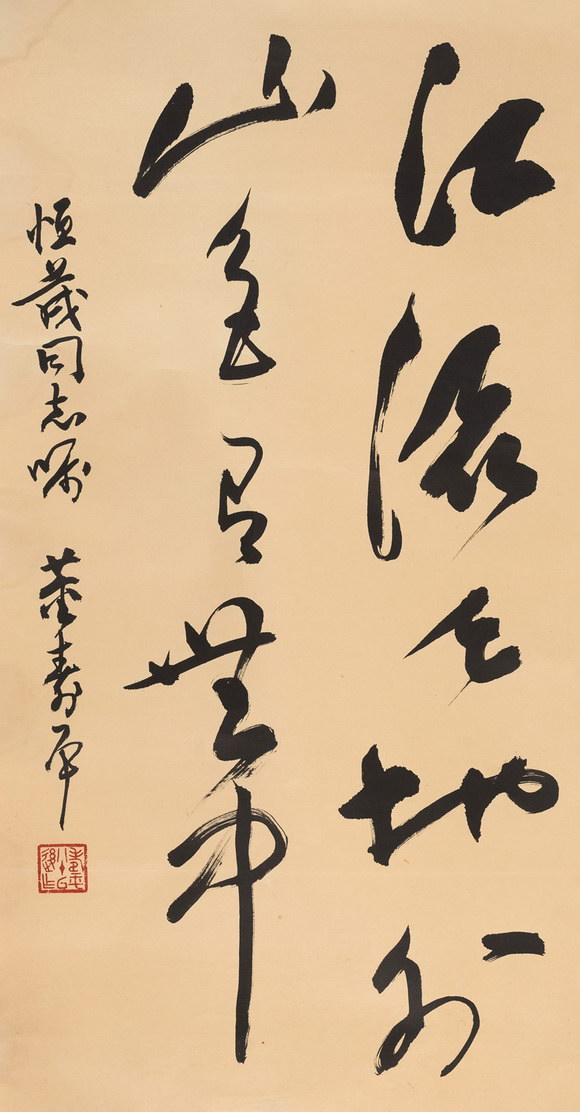 江流天地外
山色有无中
恒茂同志嘱 董寿平